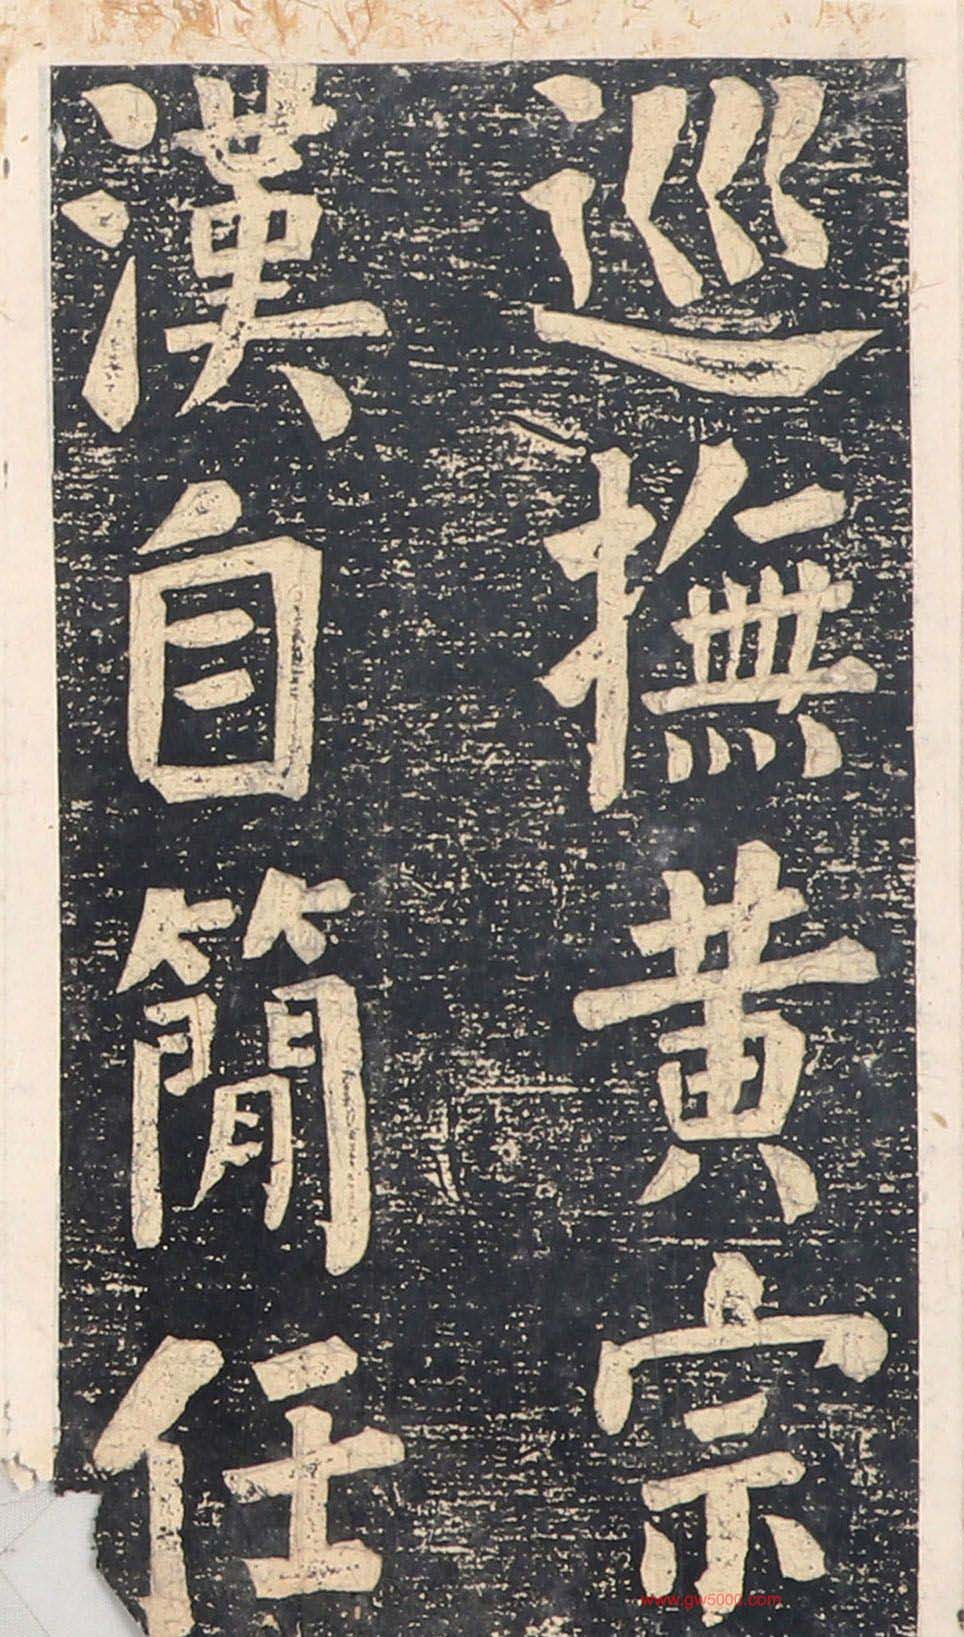 巡撫黄宗
漢自簡任
www.gw5000.com